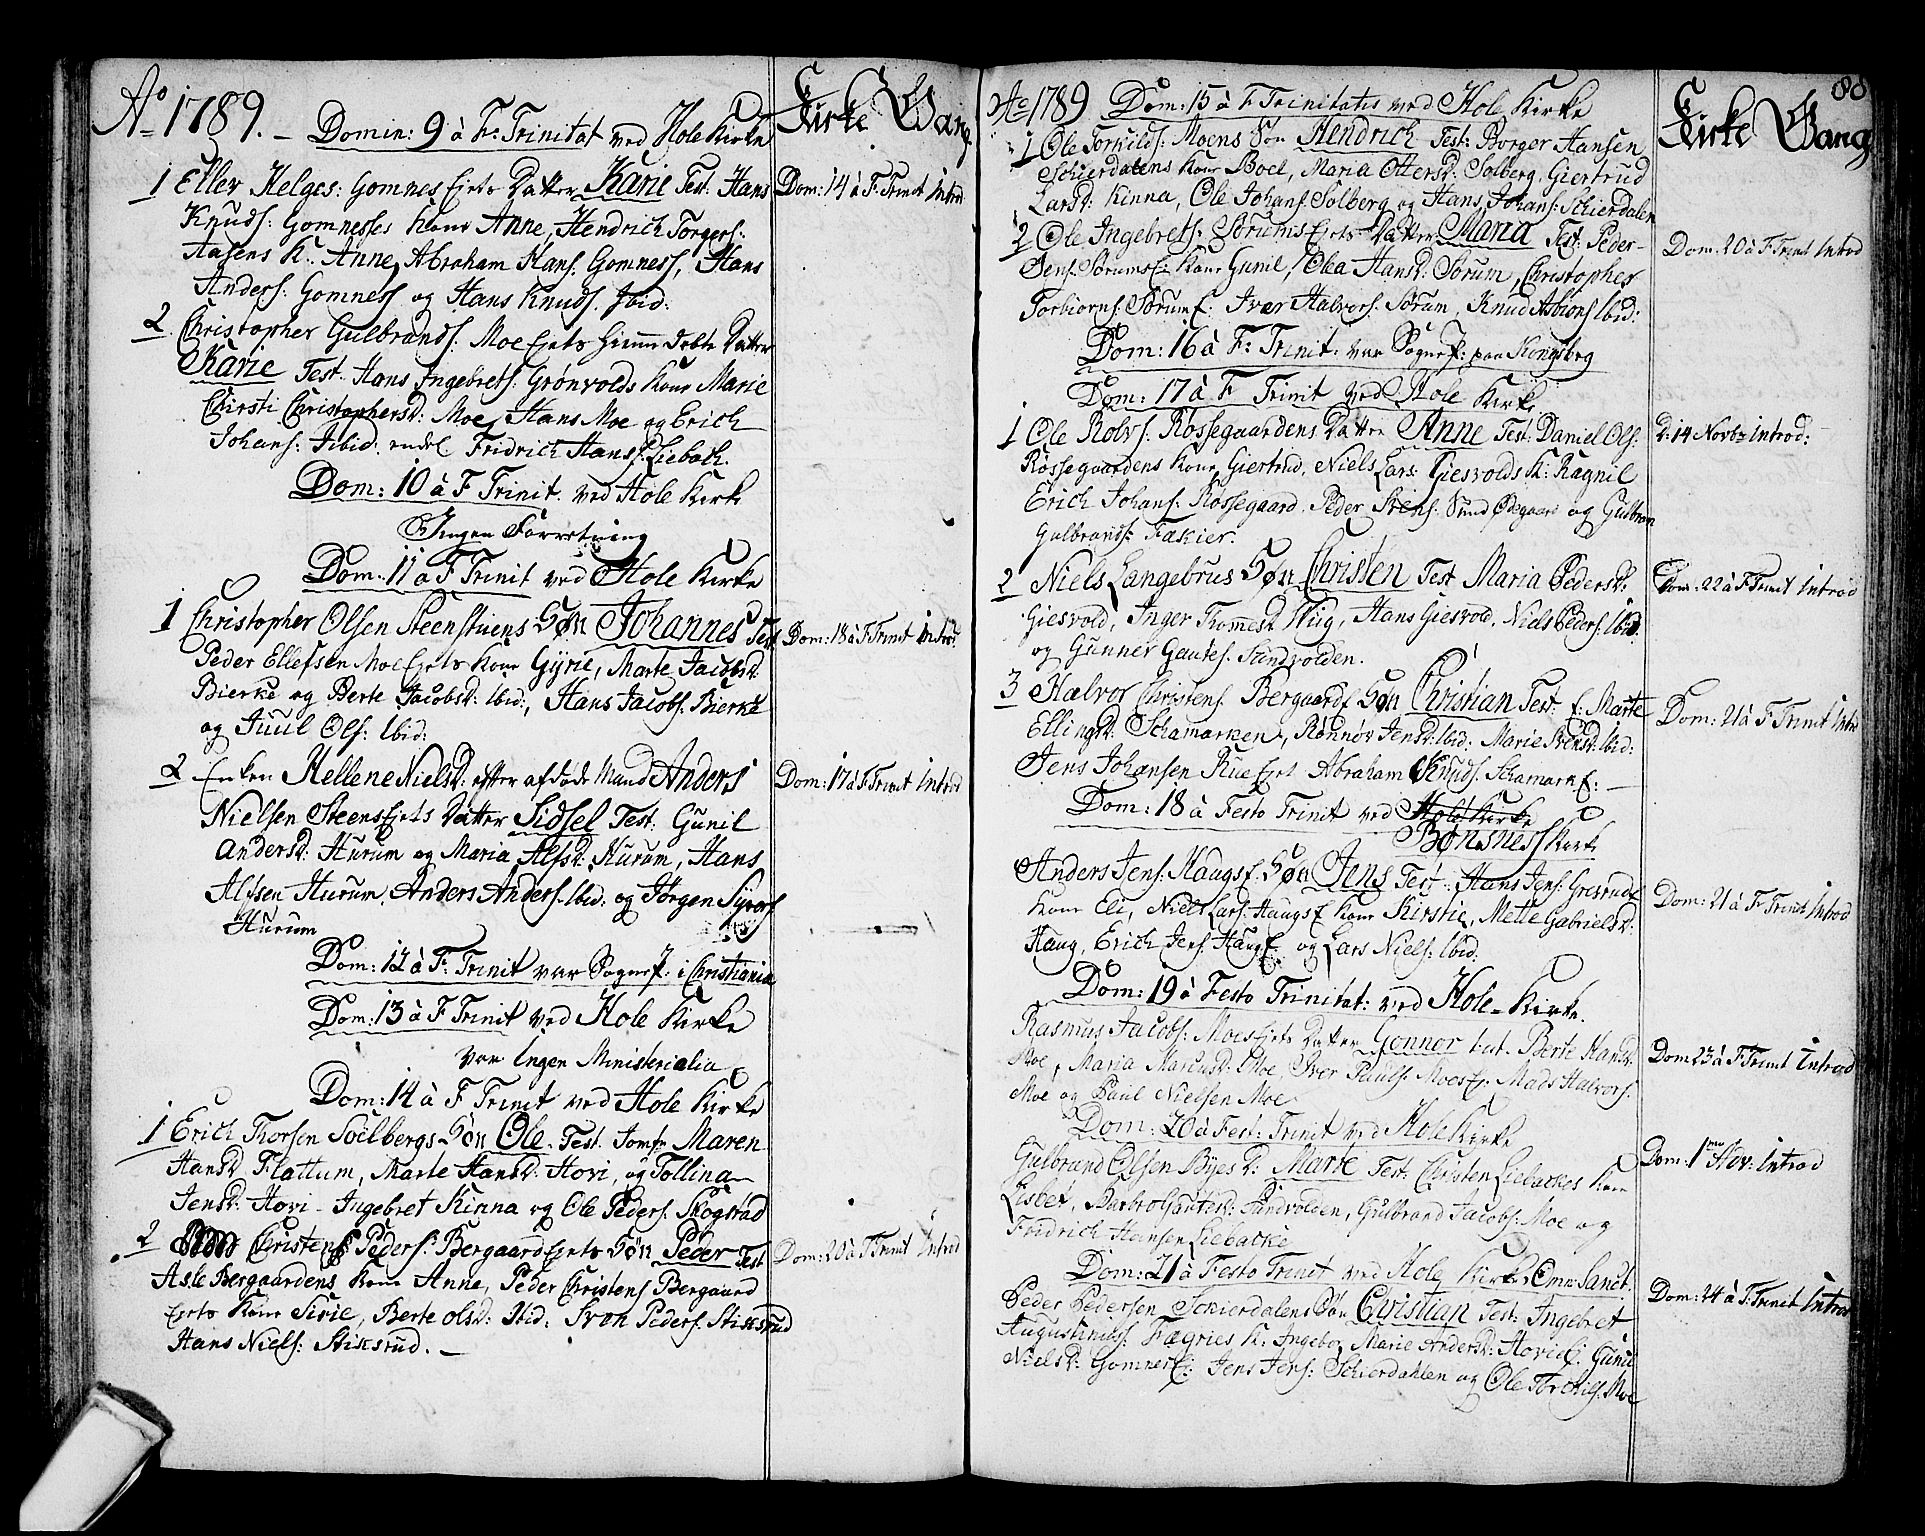 Ao 1789. – Domin: 9 à F: Trinitat ved Hole Kirke
Kirke Gang
1 Ellev Helges: Gomnes Ejets Datter Karie Test: Hans
Dom: 14 à F: Trinit Introd
Knuds: Gomnesses Kone Anne, Hendrich Torgers:
Aasens K: Anne, Abraham Hans: Gomness, Hans
Anders: Gomness og Hans Knuds: Ibid:
2 Christopher Gulbrands: Moe Ejets hiemme døbte Datter
Karie Test. Hans Ingebrets: Grønvolds Kone Marie
Chirsti Christophersd: Moe, Hans Moe og Erich
Johans: Ibid. Fridrich Hans: Liebach.
Dom: 10 à F Trinit. ved Hole Kirke
Ingen Forretning
Dom: 11 à F Trinit ved Hole Kirke
1 Christopher Olsen Steenstuens Søn Johannes Test
Dom: 18 à F Trinit Introd:
Peder Ellefsen Moe Ejets Kone Gÿrie, Marte Jacobsd:
Bierke og Berte Jacobsd: Ibid:, Hans Jacobs: Bierke
og Juul Ols: Ibid:
2 Enken Hellene Nielsd: efter afdøde Mand Anders
Dom: 17 à F Trinit Introd
Nielsen Steens Ejets Datter Sidsel Test: Gunil
Andersd: Hurum og Maria Alfsd: Hurum, Hans
Alfsen Hurum, Anders Anders: Ibid: og Jörgen Syvers
Hurum
Dom: 12 à F: Trinit var Sognepr: i Christiania
Dom: 13 à F Trinit ved Hole Kirke
var Ingen Ministerialia
Dom: 14 à F Trinit ved Hole Kirke
1 Erich Thorsen Soelbergs Søn Ole. Test. Jomfr Maren
Hansd Flattum, Marte Hansd: Hovi, og Tollina
Jensd: Hovi – Ingebret Kinna og Ole Peders: Skogstad
2 Christens Peders: Bergaard Ejets Søn Peder Test
Dom: 20 à F Trinit Introd
Asle Bergaardens Kone Anne, Peder Christens Bergaard
Ejets Kone Sirie, Berte Olsd: Ibid: Sven Peders: Stiksrud
Hans Niels: Stiksrud. –
88
Ao 1789 Dom: 15 à F Trinitatis ved Hole Kirke
Kirke Gang
1 Ole Torkilds: Moens Søn Hendrich Test: Borger Hansen
Schierdalens Kone Boel, Maria Ottersd: Solberg, Giertrud
Larsd: Kinna, Ole Johans: Solberg og Hans Johans: Schierdalen
2 Ole Ingebrets: Sørums Ejets Datter Maria Test: Peder
Dom: 20 à F Trinit Introd
Jens: Sørums E: Kone Gunil, Olea Hansd: Sørum, Christopher
Torbiorns: Sørum E: Iver Halvors: Sørum, Knud Asbions Ibid:
Dom: 16 à F: Trinit: var Sognepr: paa Kongsberg
Dom: 17 à F Trinit ved Hole Kirke
1 Ole Rolvs: Røssegaardens Datter Anne Test: Daniel Ols:
D: 14 Novbr Introd: –
Røssegaardens Kone Giertrud, Niels Lars: Giesvolds K: Ragnil
Erich Johans: Røssegaard. Peder Svens: Sund Ødegaard og Gulbran
Gulbrands: Fækier.
2 Niels Langebrus Søn Christen Test Maria Pedersd:
Dom: 22 à F Trinit Introd
Giesvold, Inger Tommesd Wiig, Hans Giesvold, Niels Peders: Ibid:
og Gunner Gautes: Sundvolden.
3 Halvor Christens: Bergaards Søn Christian Test: E: Marte
Dom: 21 à F Trinit Intro
Ellingsd: Schamarken, Rønnøv Jensd: Ibid: Marie Svensd: Ibid:
Jens Johansen Rue Ejet Abraham Knuds: Schamark E: –
Dom: 18 à Festo Trinit ved Hole Kirke
Bønsness Kirke
Anders Jens: Haags E: Søn Jens Test: Hans Jens: Gresrud E
Dom: 21 à F Trinit Introd
Kone Eli, Niels Lars: Haugs E Kone Kirstie, Mette Gabrielsd:
Haug, Erich Jens: Haug E: og Lars Niels: Ibid:
Dom: 19 à Festo Trinitat: ved Hole – Kirke.
Rasmus Jacobs: Moes Ejets Datter Gonnor test. Berte Hansd:
Dom 23 à F Trinit Introd
Moe, Maria Marcusd: Moe, Iver Pauls: Moes E: Mads Halvors:
Moe og Paul Nielsen Moe
Dom: 20 à Fest: Trinit ved Hole Kirke
Gulbrand Olsen Byes D: Marte Test: Christen Liebackes Kone
Dom: 1me Adv: Introd
Lisbet, Barbro Gautesd: Sundvolden, Gulbrand Jacobs: Moe og
Fridrich Hansen Liebacke
Dom: 21 à Festo Trinit ved Hole Kirke Omn: Sanct:
Peder Pedersen Schierdalens Søn Christian Test: Ingebret
Dom: 24 à F Trinit Introd
Augustinus: Fægries K: Ingebor, Marie Andersd: Hovi E: Gunil
Nielsd: Gomnes E: Jens Jens: Schierdahlen og Ole Torchils: Moe